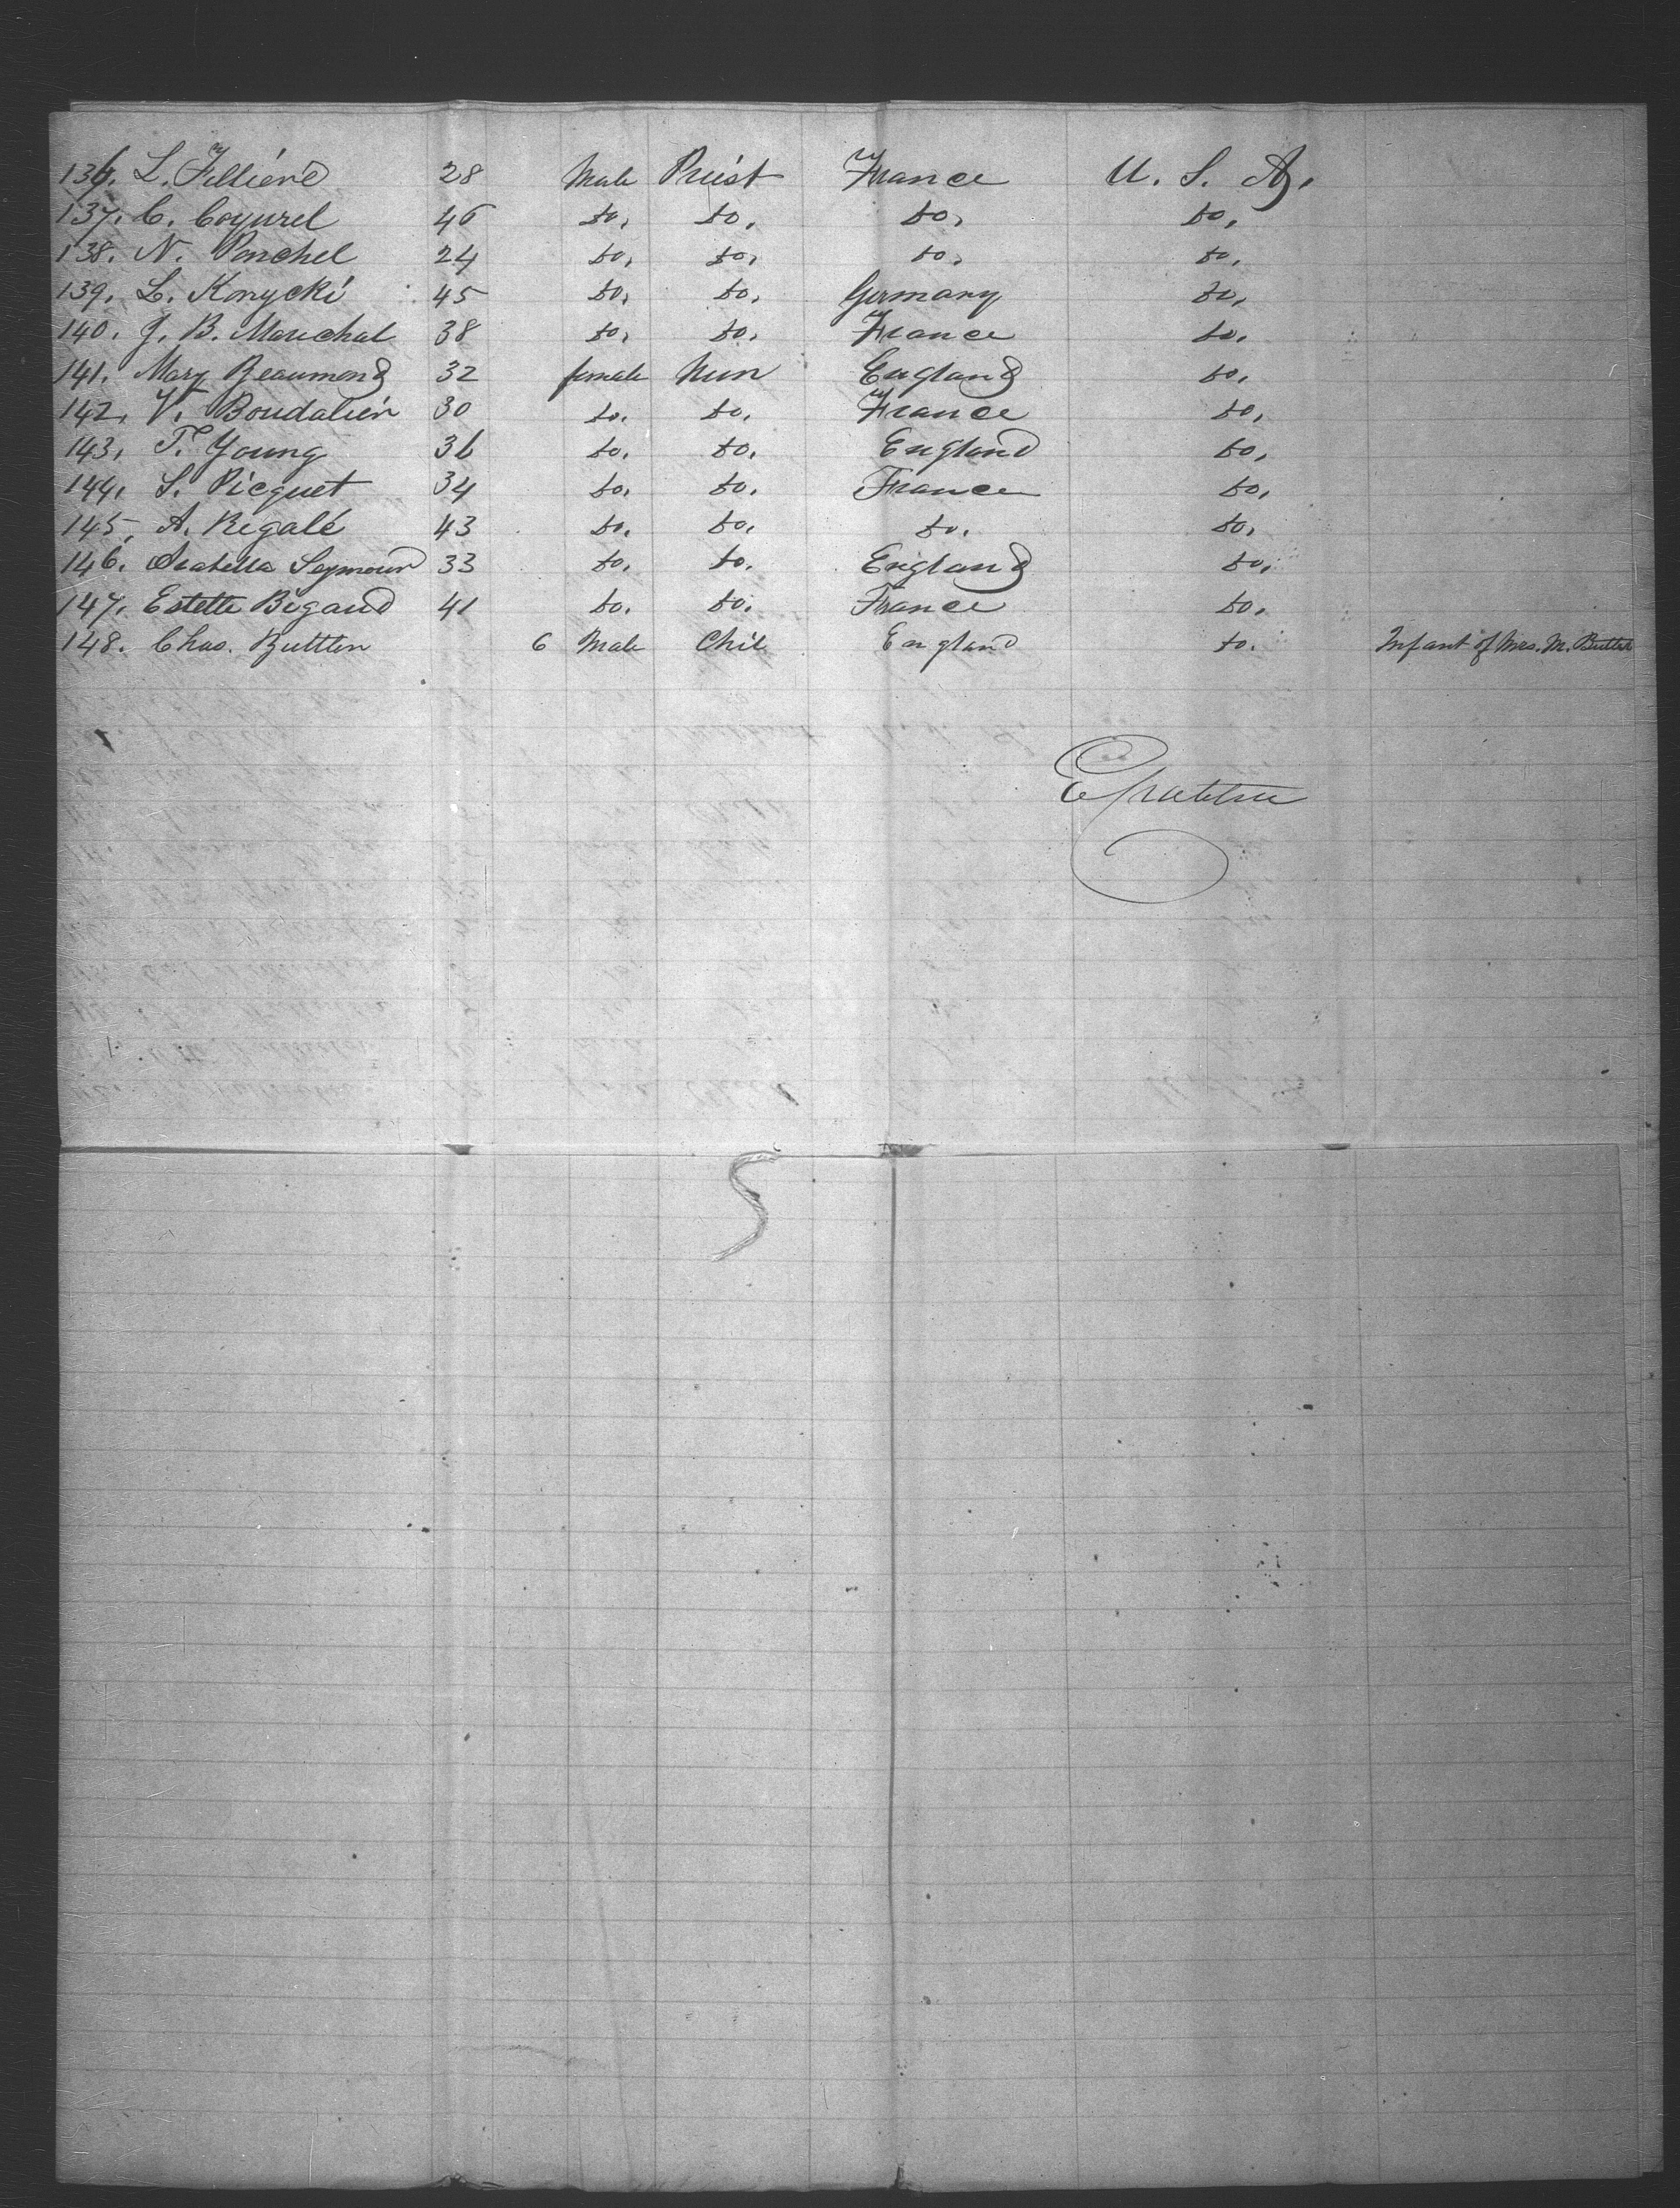 136. L. Fillierd 28 Male Priest France U. S. A.
137. C. Coyurel 46 do. do. do. do.
138. N. Ponchel 24 do. do. do. do.
139. L. Konycki 45 do. do. Germany do.
140. J. B. Marechal 38 do. do. France do.
141. Mary Beaumond 32 female Nun England do.
142. V. Boudalier 30 do. do. France do.
143. T. Young 36 do. do. England do.
144. S. Picquet 34 do. do. France do.
145. A. Regalé 43 do. do. do. do.
146. Arabella Seymour 33 do. do. England do.
147. Estelle Bigaud 41 do. do. France do.
148. Chas. Buttler 6 Male Chil England do. Infant of Mrs. M. Butler
5